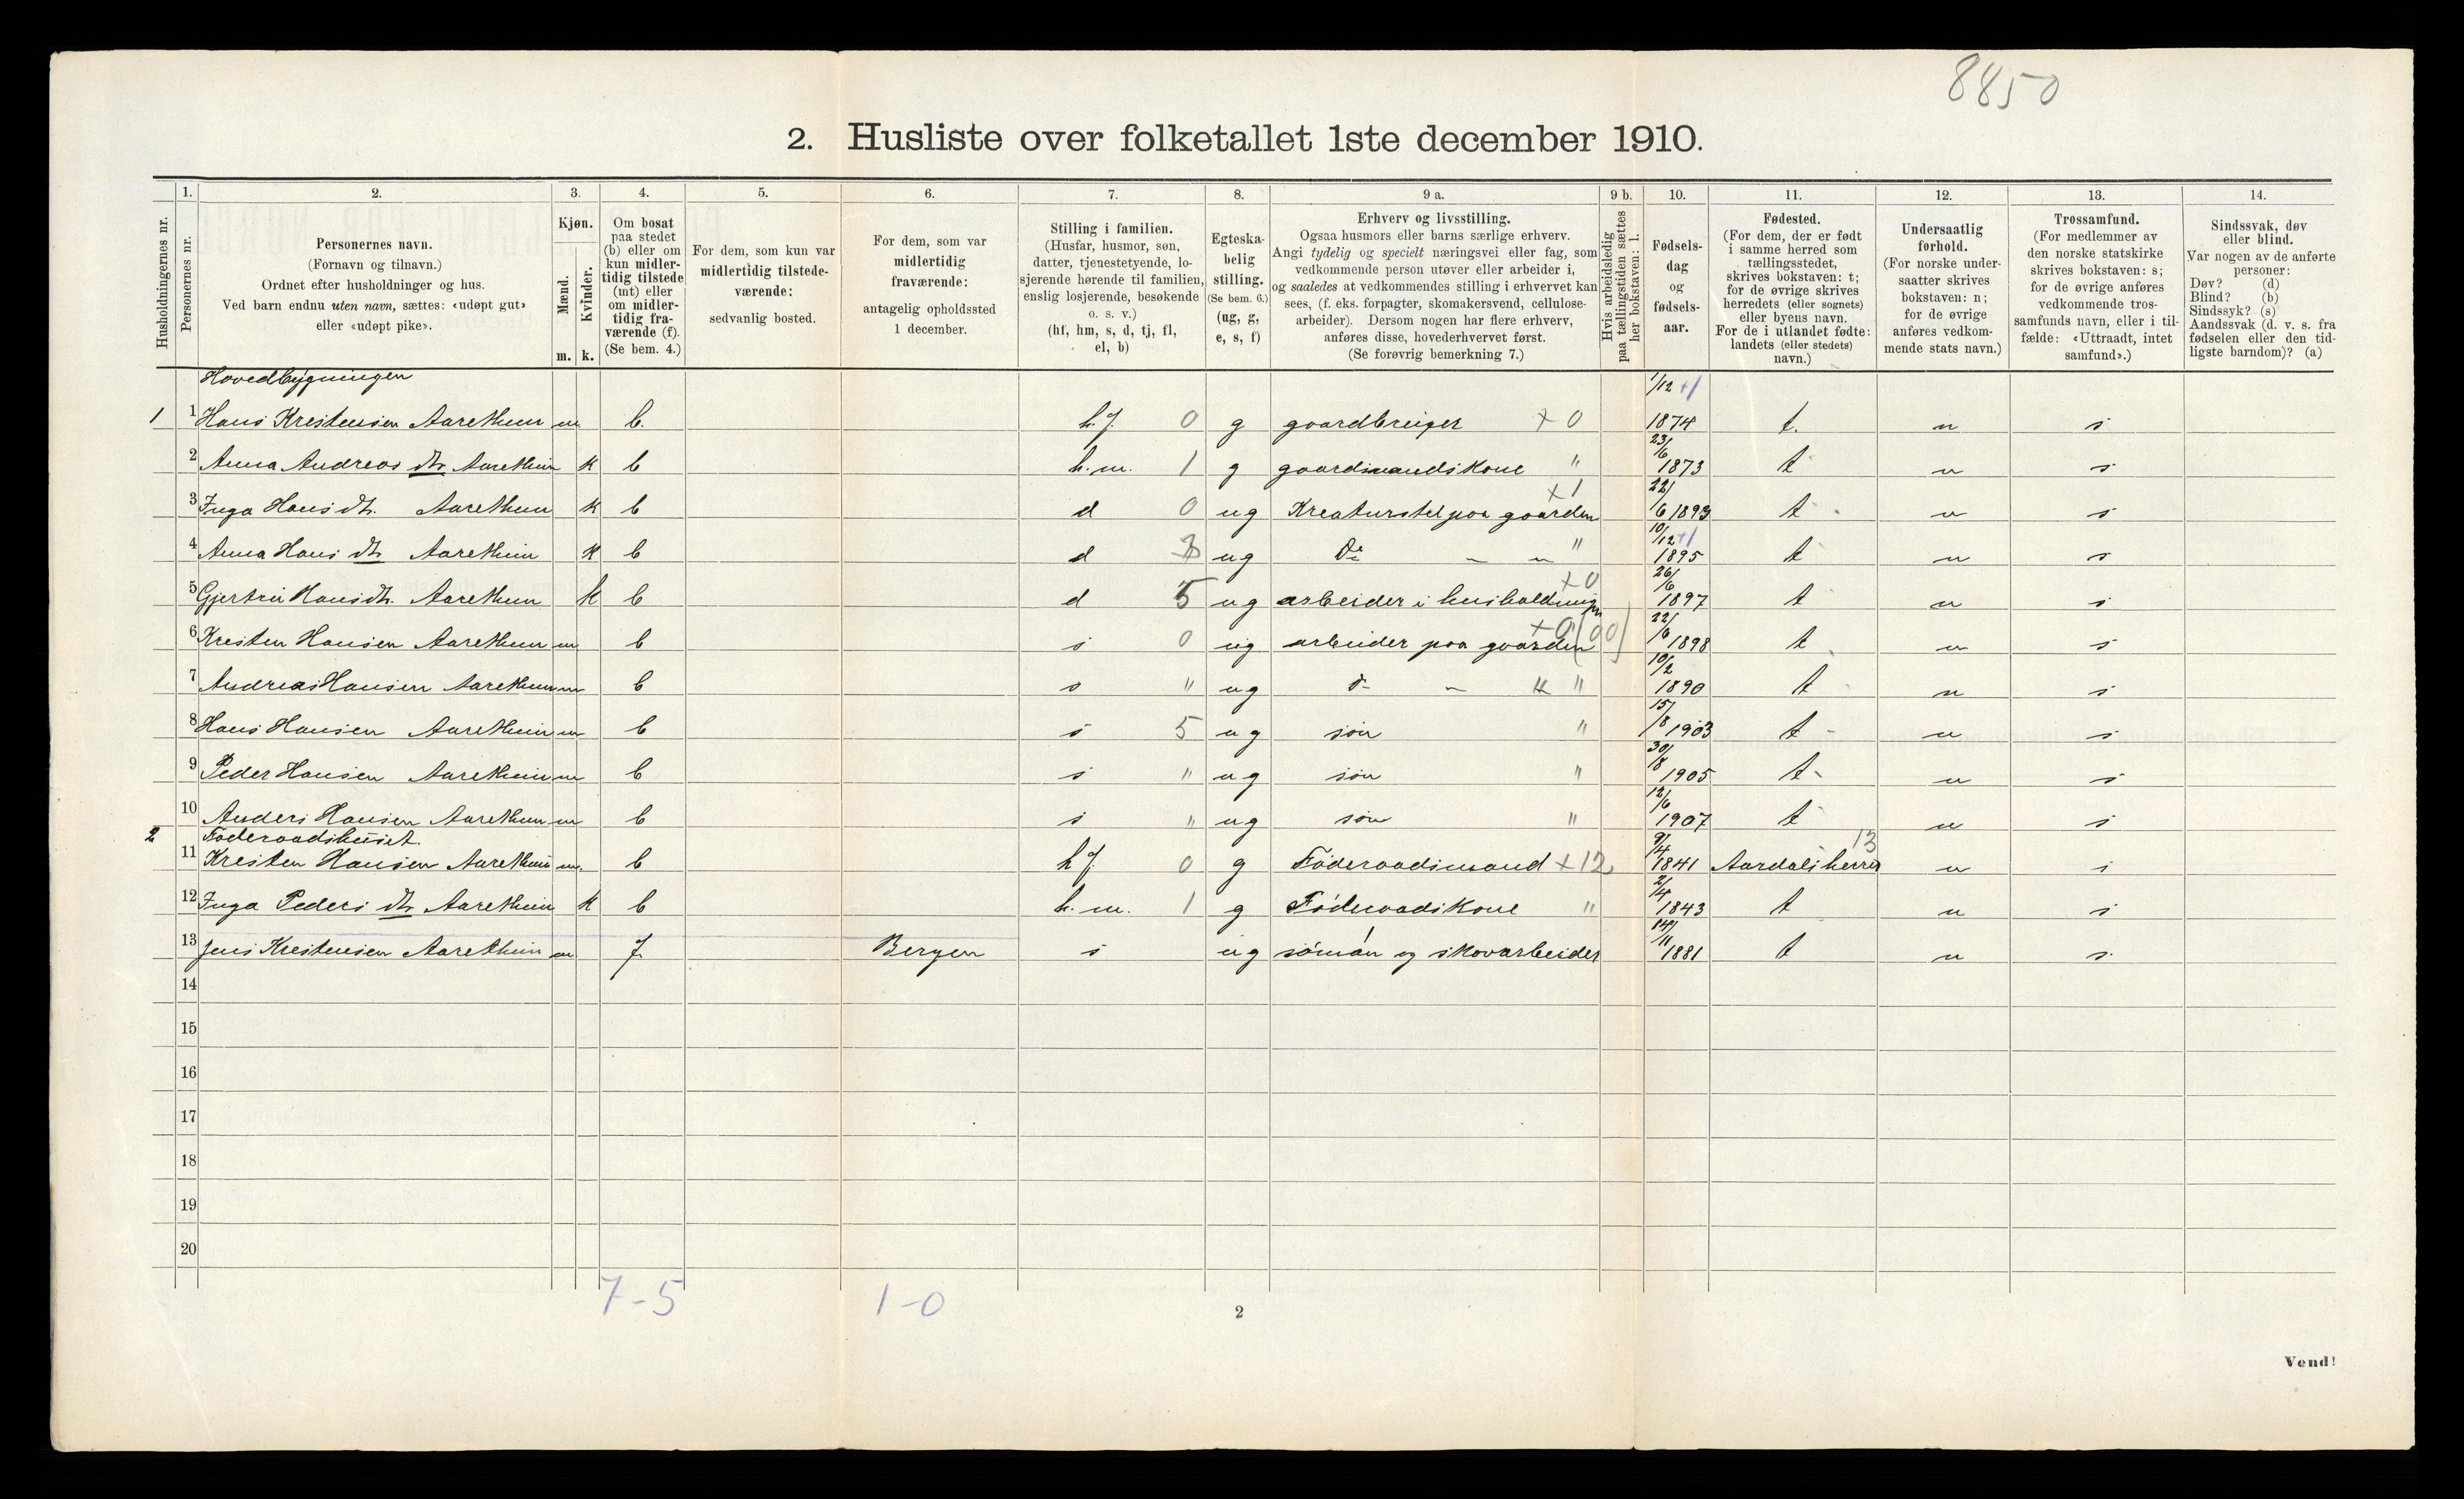 8850
2. Husliste over folketallet 1ste december 1910.
Husholdningernes nr.
1.
Personernes nr.
2.
Personernes navn.
(Fornavn og tilnavn.)
Ordnet efter husholdninger og hus.
Ved barn endnu uten navn, sættes: «udøpt gut»
eller «udøpt pike».
3.
Kjøn.
Mænd.
Kvinder.
m. k.
4.
Om bosat
paa stedet
(b) eller om
kun midler-
tidig tilstede
(mt) eller
om midler-
tidig fra-
værende (f).
(Se bem. 4.)
5.
For dem, som kun var
midlertidig tilstede-
værende:
sedvanlig bosted.
6.
For dem, som var
midlertidig
fraværende:
antagelig opholdssted
1 december.
7.
Stilling i familien.
(Husfar, husmor, søn,
datter, tjenestetyende, lo-
sjerende hørende til familien,
enslig losjerende, besøkende
o. s. v.)
(hf, hm, s, d, tj, fl,
el, b)
8.
Egteska-
belig
stilling.
(Se bem. 6.)
(ug, g,
e, s, f)
9 a.
Erhverv og livsstilling.
Ogsaa husmors eller barns særlige erhverv.
Angi tydelig og specielt næringsvei eller fag, som
vedkommende person utøver eller arbeider i,
og saaledes at vedkommendes stilling i erhvervet kan
sees, (f. eks. forpagter, skomakersvend, cellulose-
arbeider). Dersom nogen har flere erhverv,
anføres disse, hovederhvervet først.
(Se forøvrig bemerkning 7.)
9 b.
Hvis arbeidsledig
paa tællingstiden sættes
her bokstaven: l.
10.
Fødsels-
dag
og
fødsels-
aar.
11.
Fødested.
(For dem, der er født
i samme herred som
tællingsstedet,
skrives bokstaven: t;
for de øvrige skrives
herredets (eller sognets)
eller byens navn.
For de i utlandet fødte:
landets (eller stedets)
navn.)
12.
Undersaatlig
forhold.
(For norske under-
saatter skrives
bokstaven: n;
for de øvrige
anføres vedkom-
mende stats navn.)
13.
Trossamfund.
(For medlemmer av
den norske statskirke
skrives bokstaven: s;
for de øvrige anføres
vedkommende tros-
samfunds navn, eller i til-
fælde: «Uttraadt, intet
samfund».)
14.
Sindssvak, døv
eller blind.
Var nogen av de anførte
personer:
Døv? (d)
Blind? (b)
Sindssyk? (s)
Aandssvak (d. v. s. fra
fødselen eller den tid-
ligste barndom)? (a)
Hovedbygningen
1 1 Hans Krestensen Aarethun m b. h.f. 0 g gaardbruger +0 1/12 +1 1874 t. n s
2 Anna Andreas dtr Aarethun k b h.m. 1 g gaardmandskone " 23/6 1873 t n s
3 Inga Hans dtr. Aarethun k b d 0 ug Kreaturstel paa gaarden +1 22/6 1893 t n s
4 Anna Hans dtr Aarethun k b d ug do - - " 10/12 +1 1895 t n s
5 Gjertrü Hans dtr. Aarethun k b d 5 ug arbeider i husholdningen +0 26/6 1897 t n s
6 Kresten Hansen Aarethun m b s 0 ug arbeider paa gaarden +0 (00) 22/6 1898 t n s
7 Andreas Hansen Aarethun m b s " ug do - " 10/2 1890 t n s
8 Hans Hansen Aarethun m b s 5 ug søn " 15/8 1903 t n s
9 Peder Hansen Aarethun m b s " ug søn " 30/8 1905 t n s
10 Anders Hansen Aarethun m b s " ug søn " 12/6 1907 t n s
2 Føderaadshuset.
11 Kresten Hansen Aarethun m. b hf 0 g Føderaadsmand +12 9/4 1841 Aardals herred 13 n s
12 Inga Peders dtr Aarethun k b h.m. 1 g Føderaadskone " 2/4 1843 t n s
13 Jens Krestensen Aarethun m f Bergen s ug sømán og skovarbeider 14/11 1881 t n s
14
15
16
17
18
19
20
7-5 1-0
2
Vend!